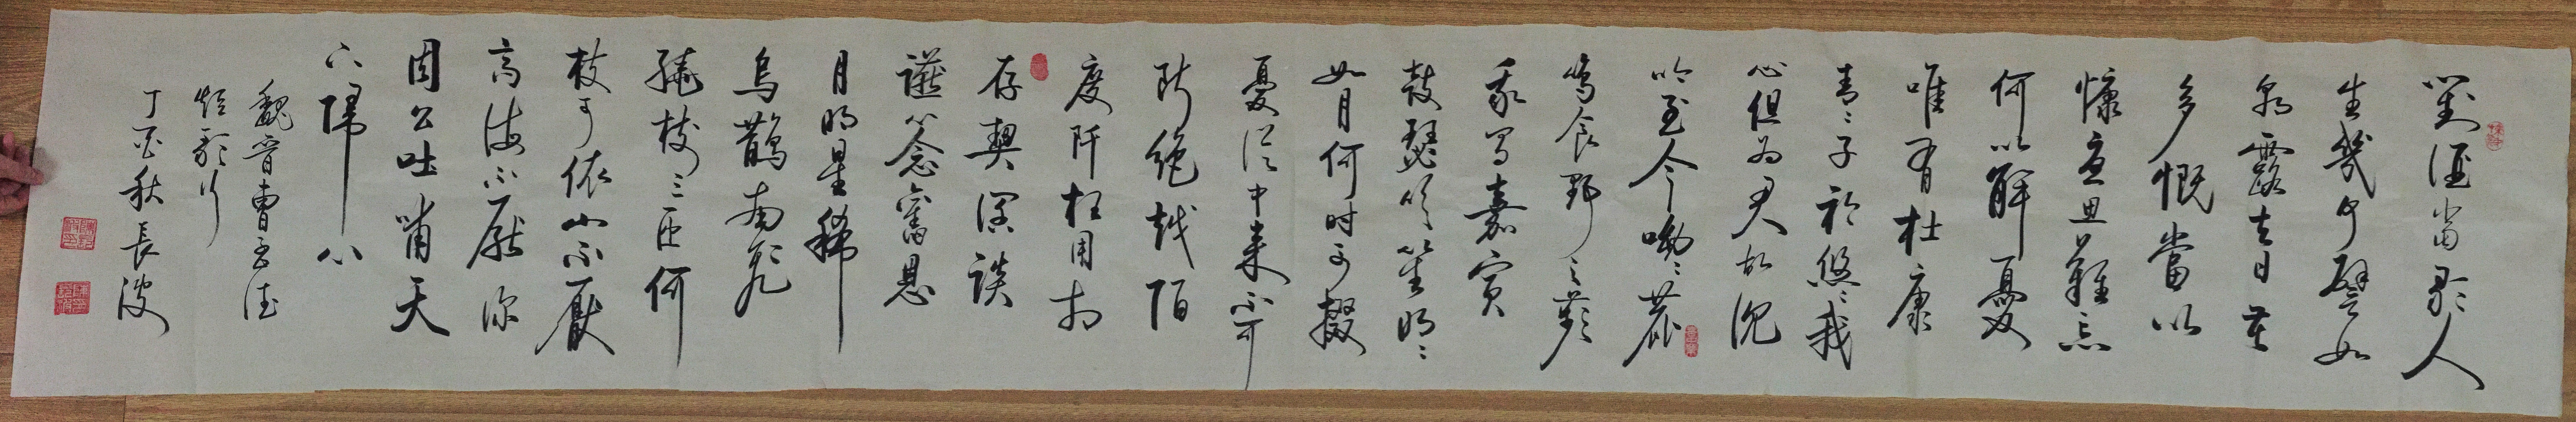 對酒當歌人
生幾何譬如
朝露去日苦
多慨當以
慷憂思難忘
何以解憂
唯有杜康
青々子衿悠々我
心但为君故沉
吟至今呦々鹿
鸣食野之苹
我有嘉賓
鼓瑟吹笙明々
如月何时可掇
憂从中来不可
断绝越陌
度阡枉用相
存契深談
讌心念舊恩
月明星稀
烏鵲南飛
繞樹三匝何
枝可依山不厭
高海不厭深
周公吐哺天
下歸心
魏晉曹孟德
短歌行
丁酉秋長波